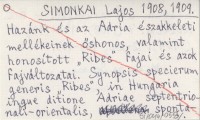 SIMONKAI Lajos 1908, 1909.
Hazánk és az Adria északkeleti
mellékeinek őshonos, valamint
honosított "Ribes" fajai és azok
fajváltozatai. Synopsis specierum
generis "Ribes" in Hungaria
ingue ditione Adriae septentrio-
nali-orientalis, sponta-